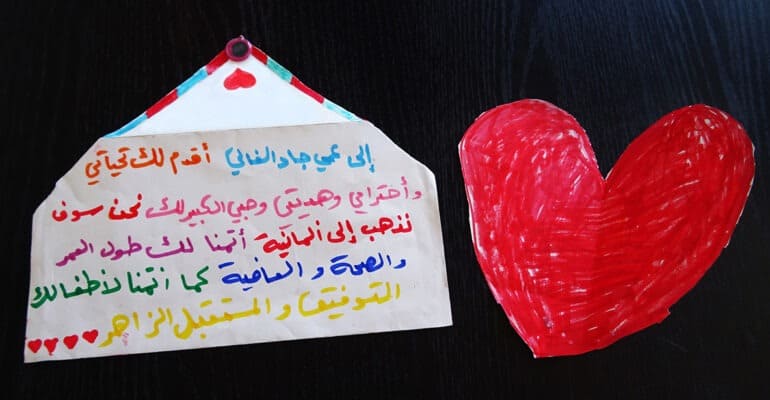 إلى عمي جاد الغالي أقدم لك تحياتي
وأحترامي وهديتي وحبي الكبير لك نحن سوف
نذهب إلى ألمانية أتمنا لك طول العمر
والصحة والعافية كما أتمنا لأطفالك
التوفيق والمستقبل الزاهر